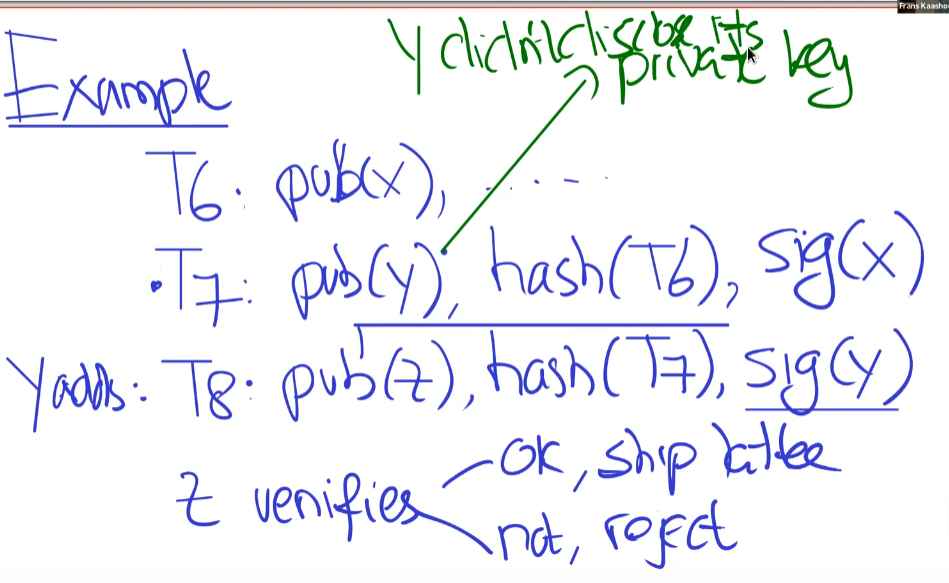 Frans Kaasho
Y didn't disclose its
private key
Example
T6: pub(x), .....
T7: pub(y), hash(T6), sig(x)
Y adds: T8: pub(z), hash(T7), sig(y)
Z verifies
OK, ship lattee
not, reject